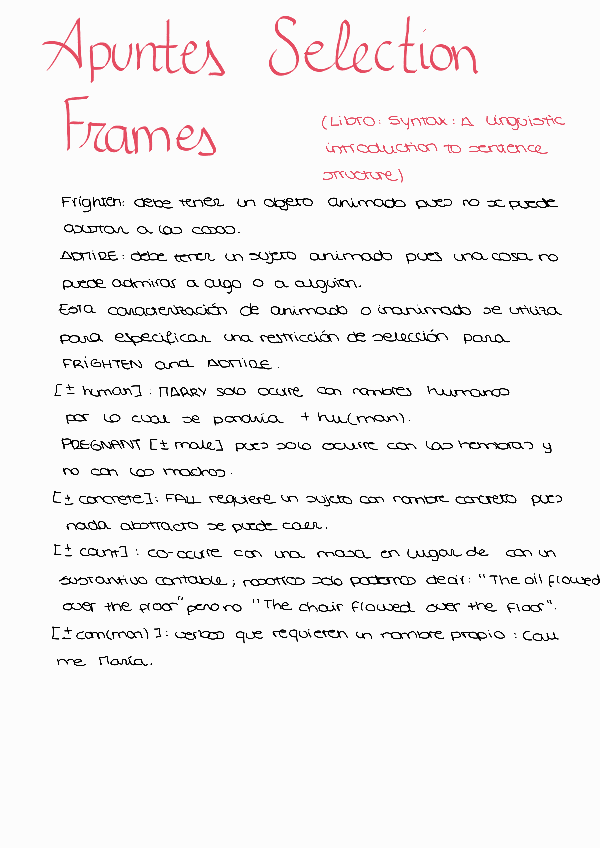 Apuntes Selection
Frames
(Libro: Syntax: A linguistic
introduction to sentence
structure)
Frighten: debe tener un objeto animado pues no se puede
asustar a las cosas.
ADMIRE: debe tener un sujeto animado pues una cosa no
puede admirar a algo o a alguien.
Esta caracterización de animado o inanimado se utiliza
para especificar una restricción de selección para
FRIGHTEN and ADMIRE.
[± human]: MARRY solo ocurre con nombres humanos
por lo cual se pondría + hu(man).
PREGNANT [± male] pues solo ocurre con las hembras y
no con los machos.
[± concrete]: FALL requiere un sujeto con nombre concreto pues
nada abstracto se puede caer.
[± count]: co-ocurre con una masa en lugar de con un
sustantivo contable; nosotros solo podemos decir: "The oil flowed
over the floor" pero no "The chair flowed over the floor".
[± com(mon)]: verbos que requieren un nombre propio: Call
me María.